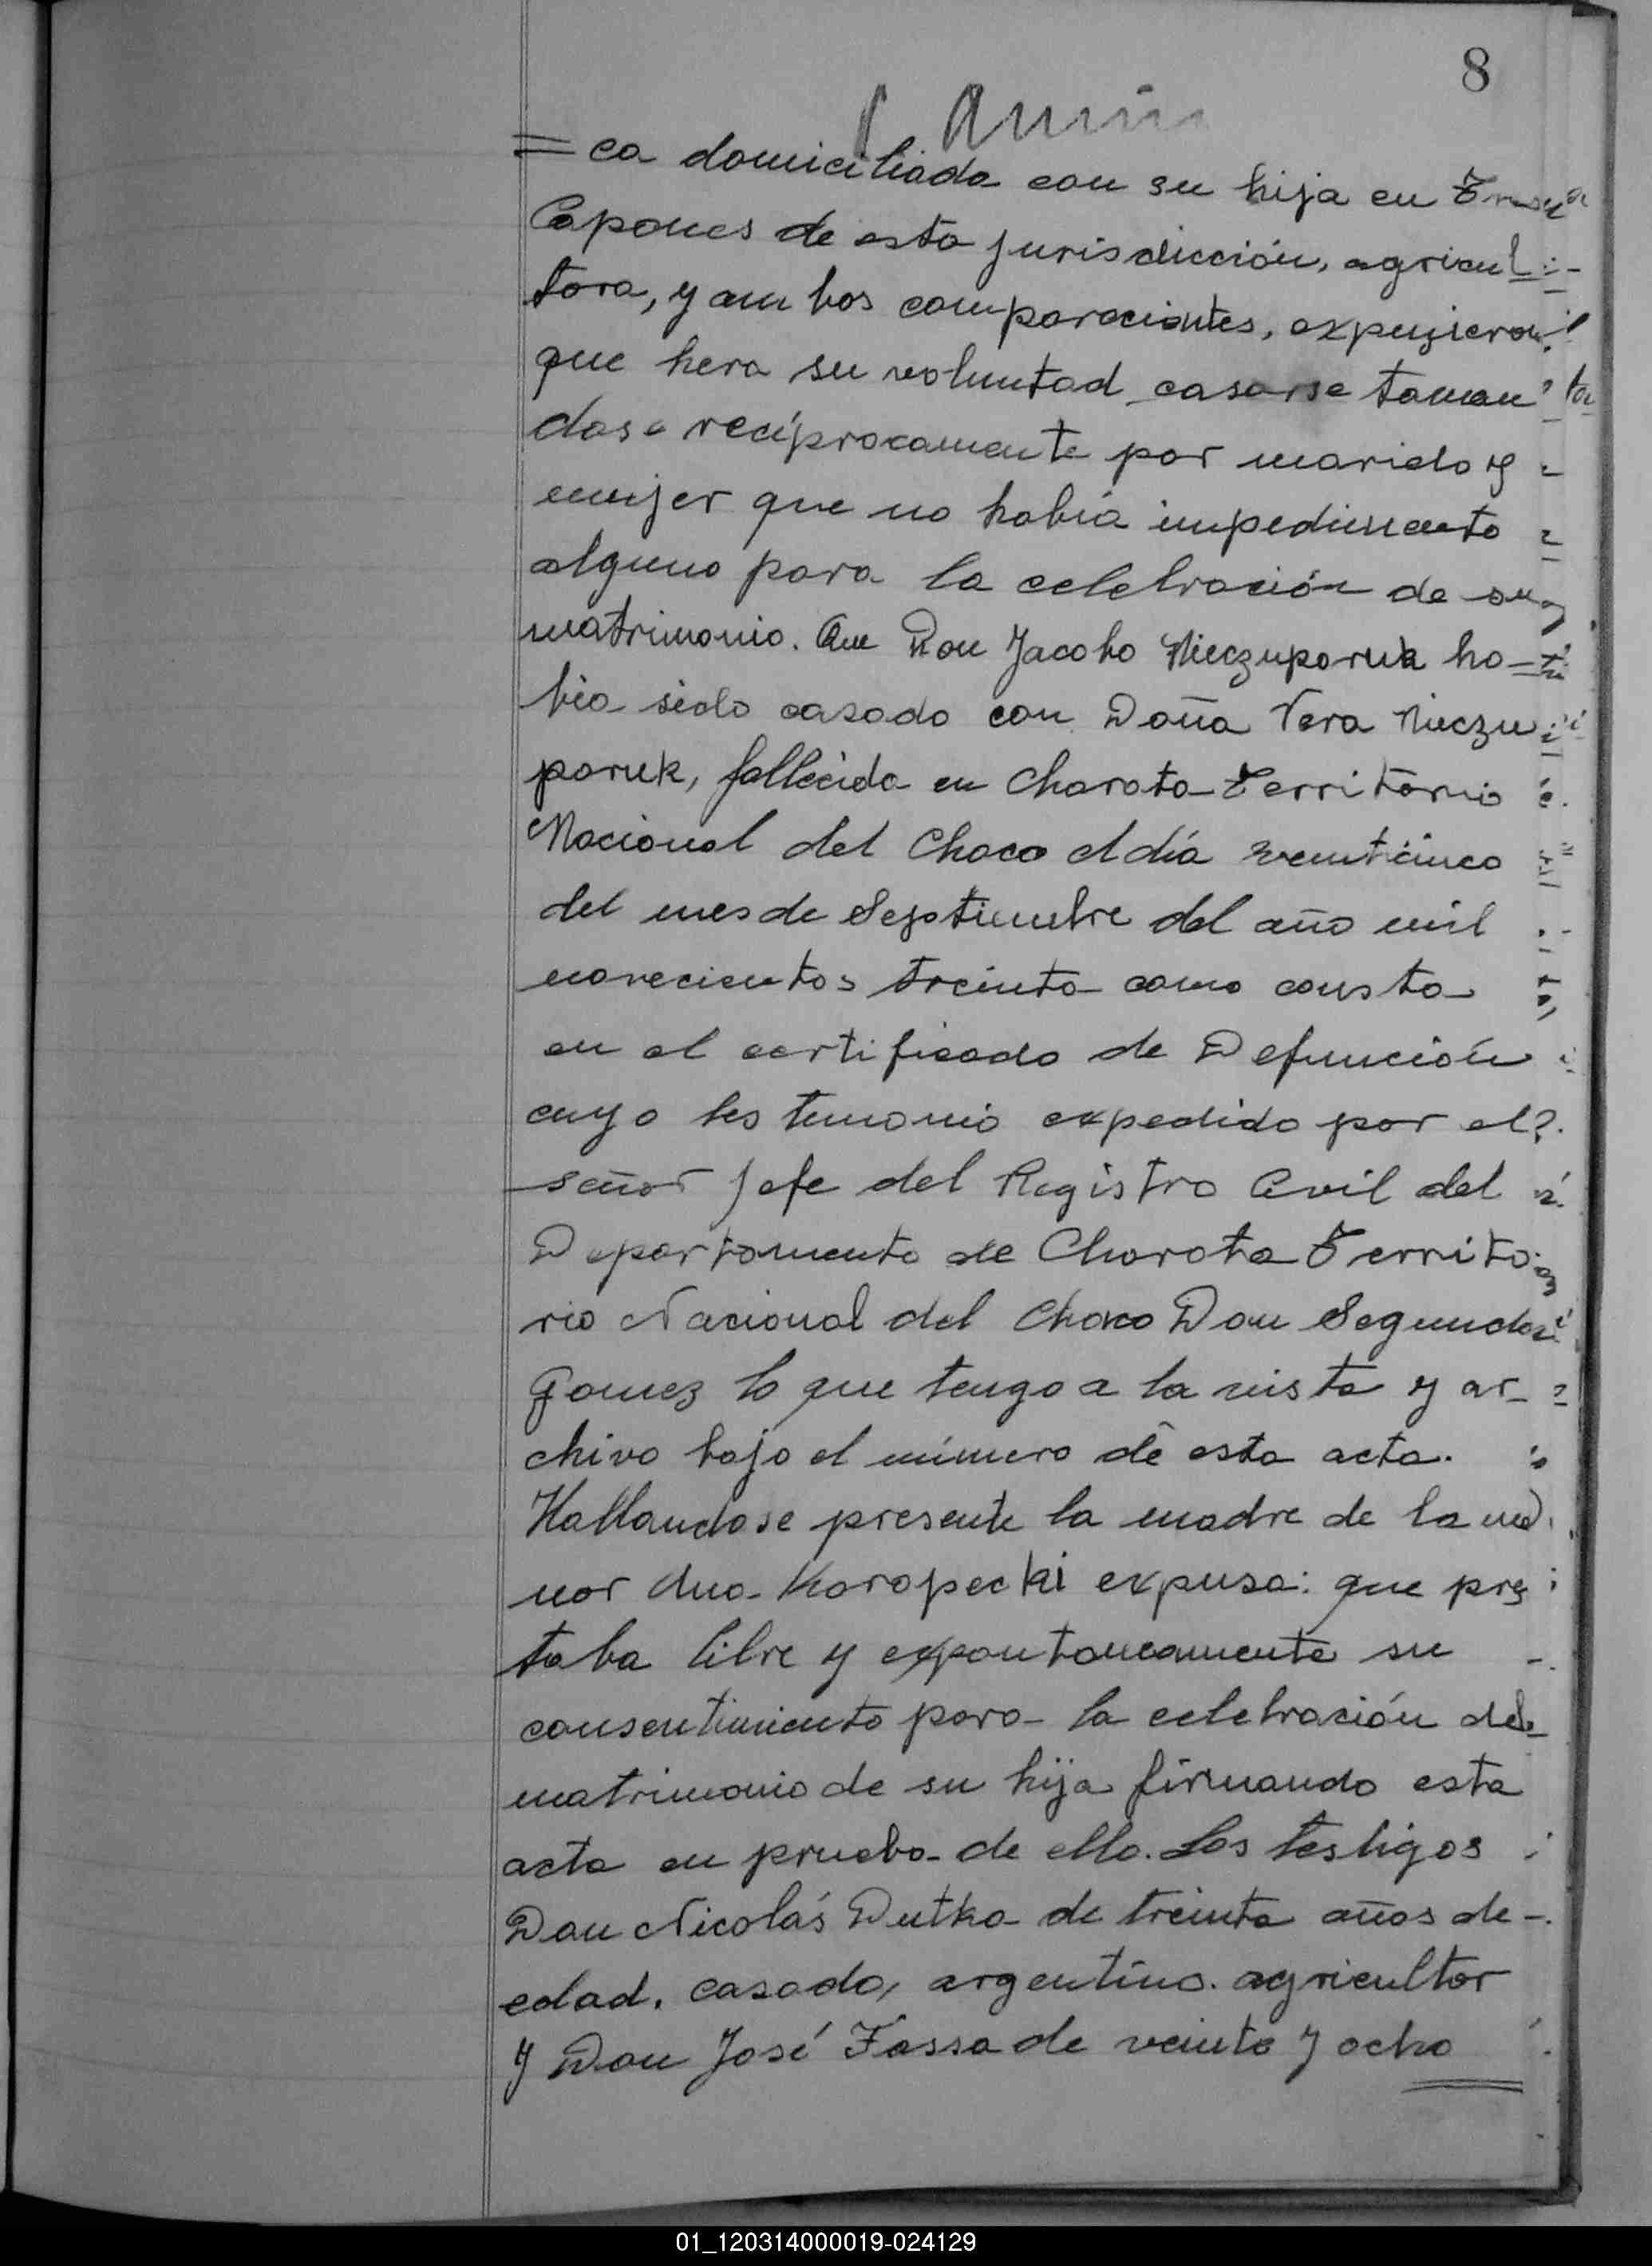 8
=ca domiciliada con su hija en Tres
Capones de esta jurisdicción, agricul
tora, y ambos comparecientes, expusieron
que hera su voluntad casarse toman
dose reciprocamente por marido y
mujer que no había impedimento
alguno para la celebración de su
matrimonio. Que Don Jacobo Nieczuporuk ha-
bia sido casado con Doña Vera Nieczu
poruk, fallecida en Charata Territorio
Nacional del Chaco el día veinticinco
del mes de Septiembre del año mil
novecientos treinta como consta
en el certificado de Defunción
cuyo testimonio expedido por el
señor Jefe del Registro Civil del
Departamento de Charata Territo
rio Nacional del Chaco Don Segundo
Gomez lo que tengo a la vista y ar-
chivo bajo el número de esta acta.
Hallandose presente la madre de la me
nor Ana Karopecki expuso: que pres
taba libre y expontaneamente su
consentimiento para la celebración del
matrimonio de su hija firmando esta
acta en prueba de ello. Los testigos
Don Nicolás Dutka de treinta años de
edad, casado, argentino. agricultor
y Don José Fassa de veinte y ocho
01_120314000019-024129